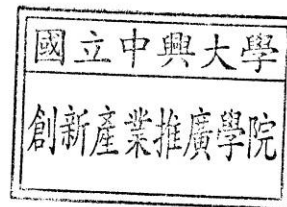 國立中興大學
創新產業推廣學院